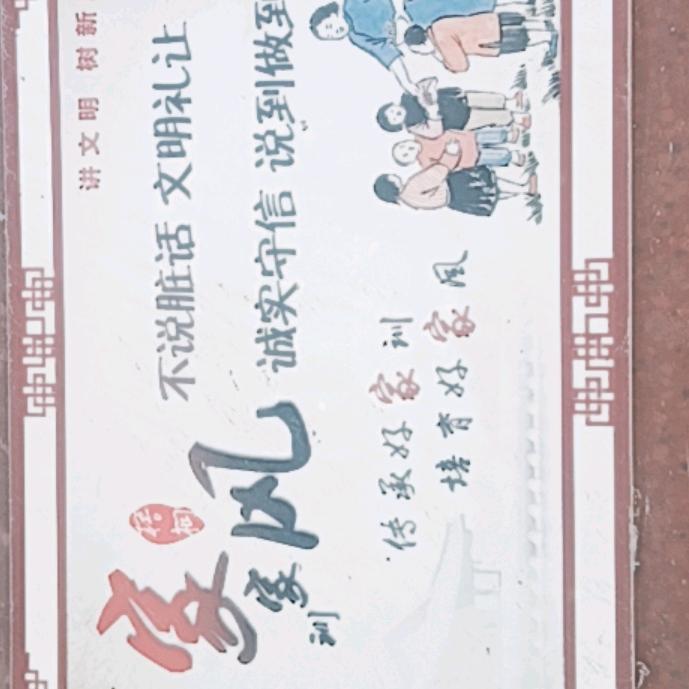 讲文明 树新
不说脏话 文明礼让
诚实守信 说到做到
梧桐
家风
家训
传承好家训
培育好家风